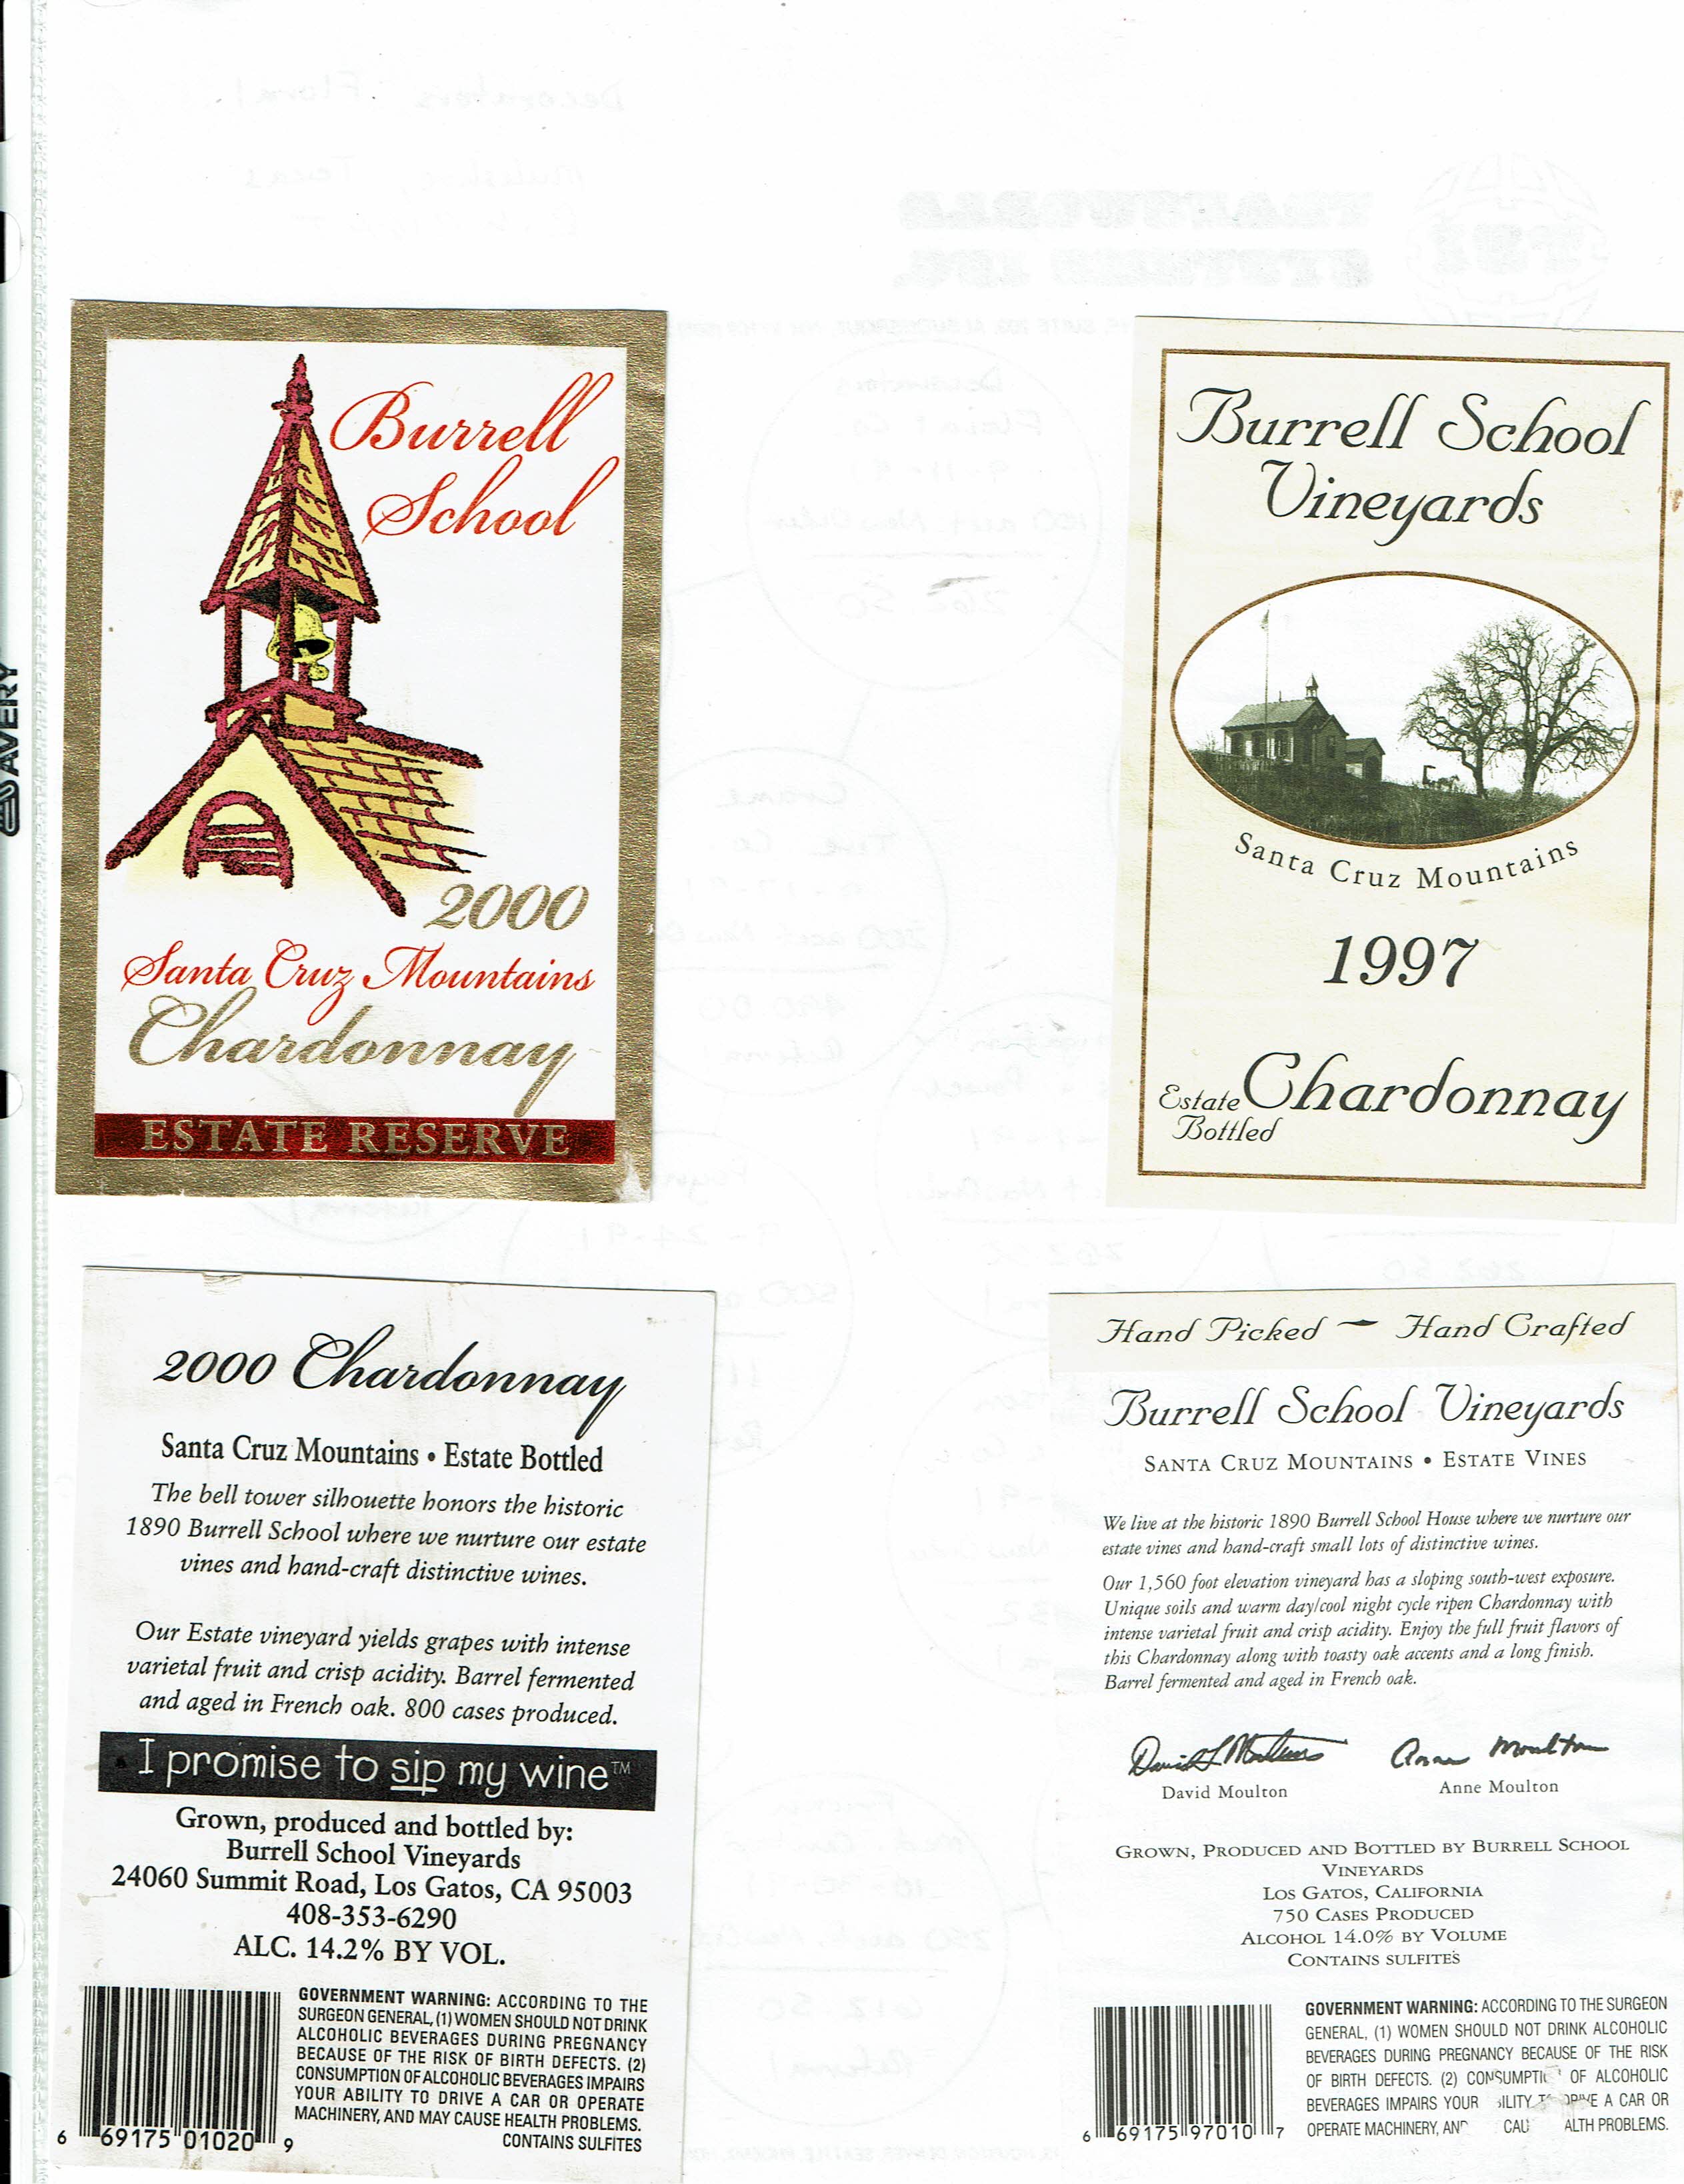 AVERY
Burrell
School
2000
Santa Cruz Mountains
Chardonnay
ESTATE RESERVE
Burrell School
Vineyards
Santa Cruz Mountains
1997
Estate Chardonnay
Bottled
2000 Chardonnay
Santa Cruz Mountains • Estate Bottled
The bell tower silhouette honors the historic
1890 Burrell School where we nurture our estate
vines and hand-craft distinctive wines.
Our Estate vineyard yields grapes with intense
varietal fruit and crisp acidity. Barrel fermented
and aged in French oak. 800 cases produced.
I promise to sip my wine™
Grown, produced and bottled by:
Burrell School Vineyards
24060 Summit Road, Los Gatos, CA 95003
408-353-6290
ALC. 14.2% BY VOL.
GOVERNMENT WARNING: ACCORDING TO THE
SURGEON GENERAL, (1) WOMEN SHOULD NOT DRINK
ALCOHOLIC BEVERAGES DURING PREGNANCY
BECAUSE OF THE RISK OF BIRTH DEFECTS. (2)
CONSUMPTION OF ALCOHOLIC BEVERAGES IMPAIRS
YOUR ABILITY TO DRIVE A CAR OR OPERATE
MACHINERY, AND MAY CAUSE HEALTH PROBLEMS.
CONTAINS SULFITES
6 69175 01020 9
Hand Picked ~ Hand Crafted
Burrell School Vineyards
SANTA CRUZ MOUNTAINS • ESTATE VINES
We live at the historic 1890 Burrell School House where we nurture our
estate vines and hand-craft small lots of distinctive wines.
Our 1,560 foot elevation vineyard has a sloping south-west exposure.
Unique soils and warm day/cool night cycle ripen Chardonnay with
intense varietal fruit and crisp acidity. Enjoy the full fruit flavors of
this Chardonnay along with toasty oak accents and a long finish.
Barrel fermented and aged in French oak.
David L Moulton Anne Moulton
David Moulton Anne Moulton
GROWN, PRODUCED AND BOTTLED BY BURRELL SCHOOL
VINEYARDS
LOS GATOS, CALIFORNIA
750 CASES PRODUCED
ALCOHOL 14.0% BY VOLUME
CONTAINS SULFITES
GOVERNMENT WARNING: ACCORDING TO THE SURGEON
GENERAL, (1) WOMEN SHOULD NOT DRINK ALCOHOLIC
BEVERAGES DURING PREGNANCY BECAUSE OF THE RISK
OF BIRTH DEFECTS. (2) CONSUMPTI OF ALCOHOLIC
BEVERAGES IMPAIRS YOUR ILITY DRIVE A CAR OR
OPERATE MACHINERY, AN CAU ALTH PROBLEMS.
6 69175 97010 7